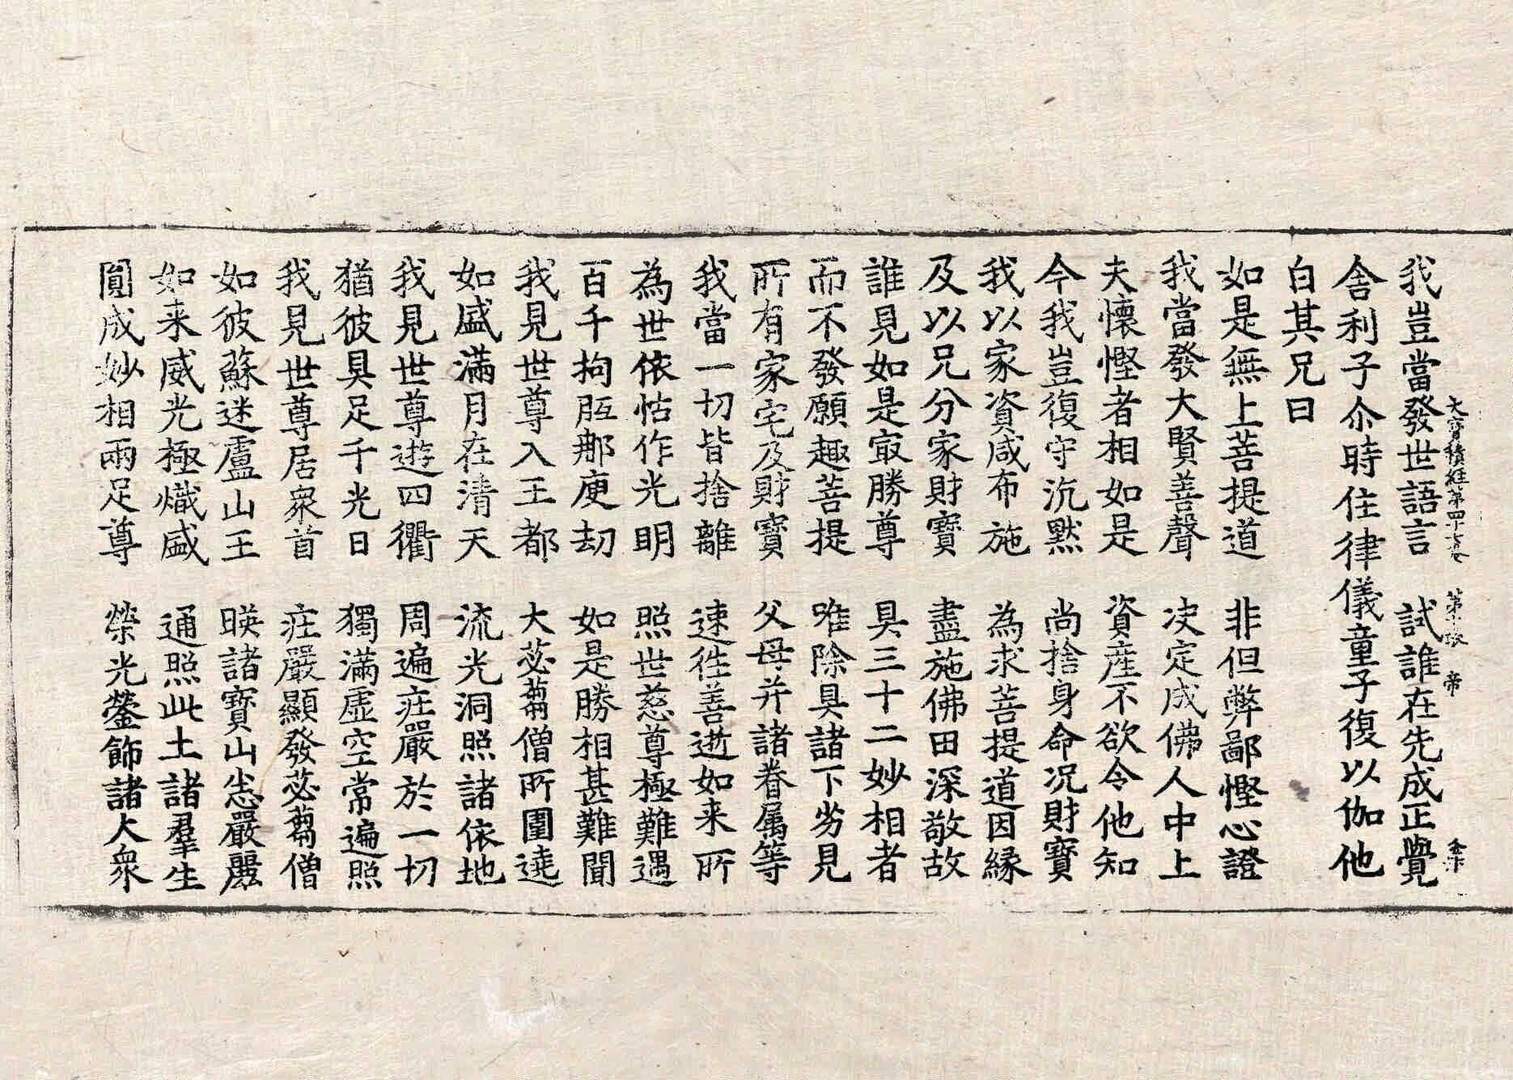 我豈當發世語言　試誰在先成正覺
大寶積經第四十六卷　第十張　帝
舍利子尒時住律儀童子復以伽他
白其兄曰
如是無上菩提道　非但弊鄙慳心證
我當發大賢善聲　决定成佛人中上
夫懷慳者相如是　資產不欲令他知
今我豈復守沉默　尚捨身命况財寶
我以家資咸布施　為求菩提道因緣
及以兄分家財寶　盡施佛田深敬故
誰見如是㝡勝尊　具三十二妙相者
而不發願趣菩提　唯除具諸下劣見
所有家宅及財寶　父母并諸眷属等
我當一切皆捨離　速徃善逝如来所
為世依怙作光明　照世慈尊極難遇
百千拘胝那庾劫　如是勝相甚難聞
我見世尊入王都　大苾蒭僧所圍遶
如盛滿月在清天　流光洞照諸依地
我見世尊遊四衢　周遍疘嚴於一切
猶彼具足千光日　獨滿虛空常遍照
我見世尊居衆首　疘嚴顯發苾蒭僧
如彼蘇迷盧山王　暎諸寶山恣嚴麗
如来威光極熾盛　通照此土諸羣生
圓成妙相兩足尊　榮光鎣飾諸大衆